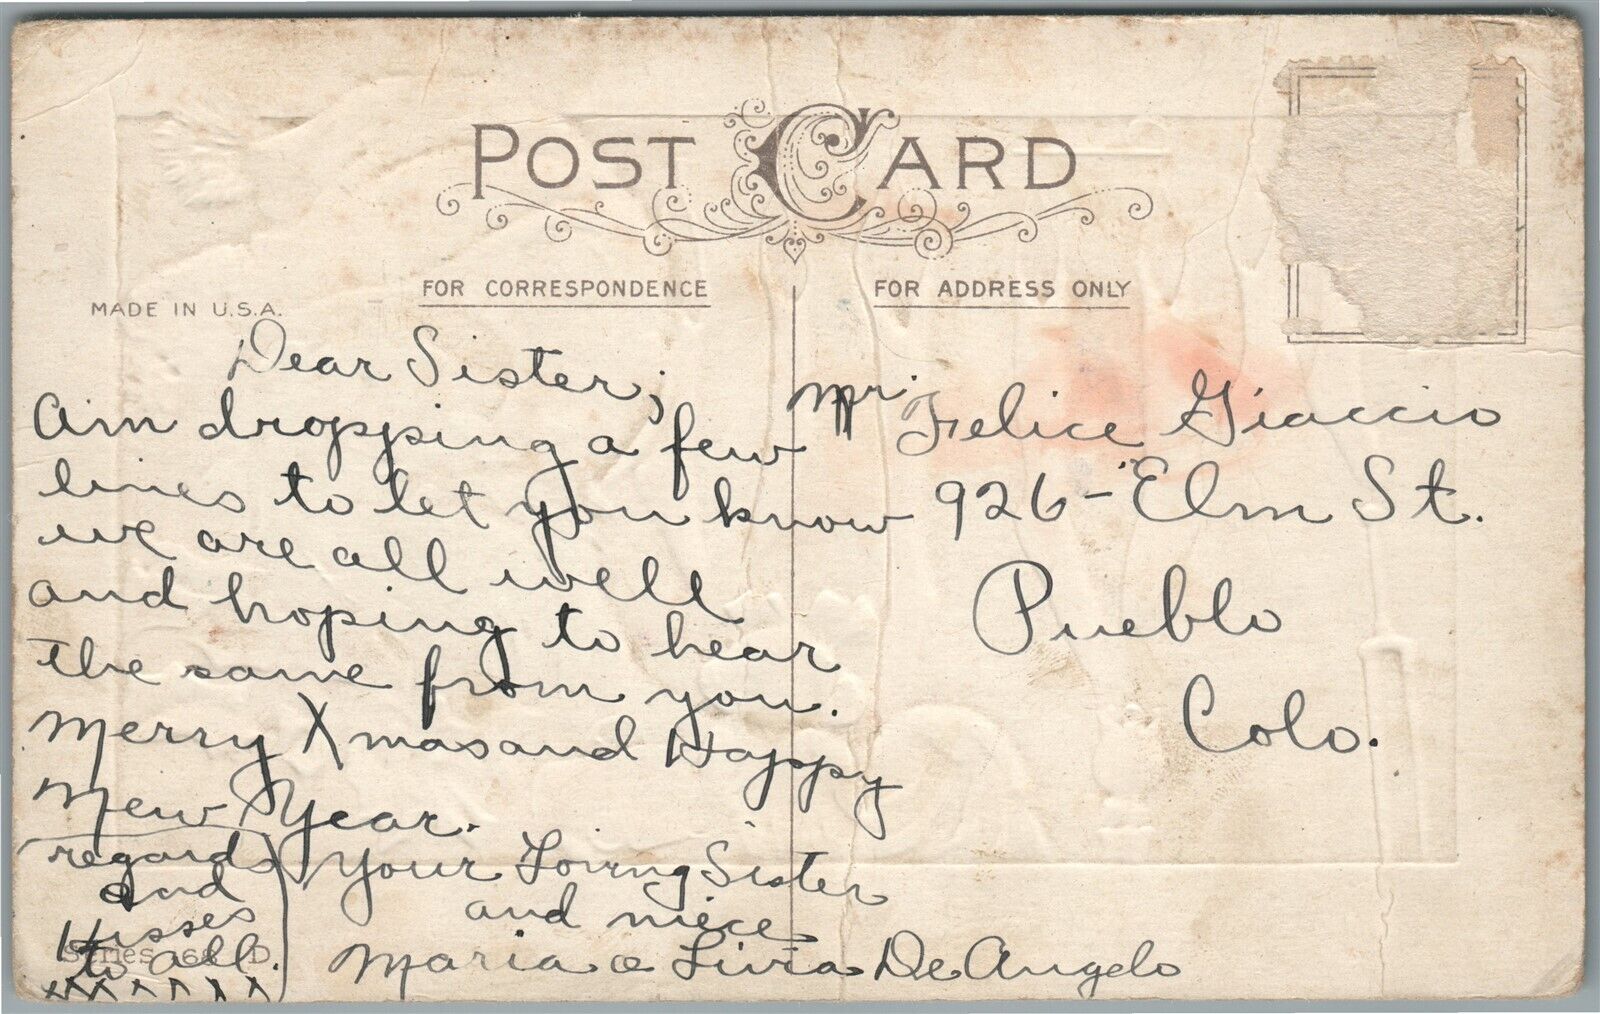 POST CARD
FOR CORRESPONDENCE
FOR ADDRESS ONLY
MADE IN U.S.A.
Dear Sister;
Aim dropping a few
lines to let you know
we are all well
and hoping to hear
the same from you.
Merry Xmas and Happy
New Year.
Your Loving Sister
and niece
Maria & Livia De Angelo
regards
and
Kisses
to all.
Series D.
Mr. Felice Giaccio
926 - Elm St.
Pueblo
Colo.